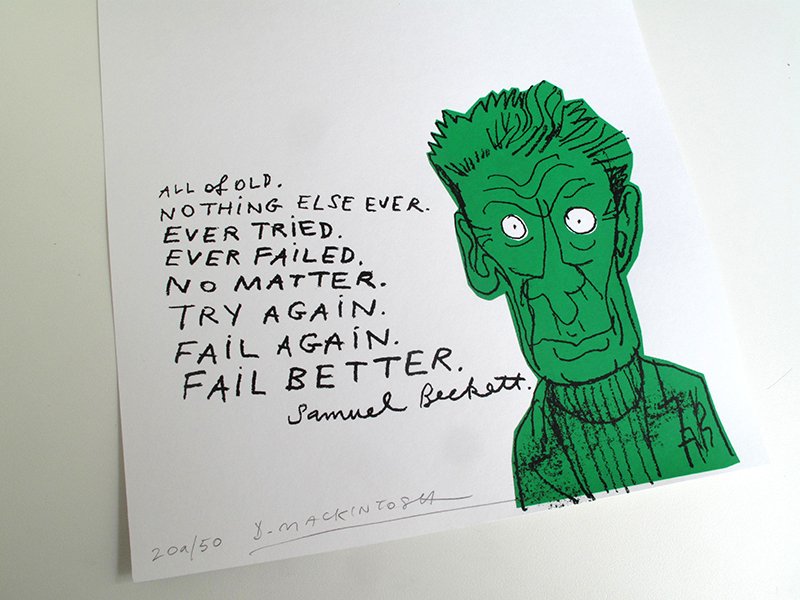 ALL of OLD.
NOTHING ELSE EVER.
EVER TRiED.
EVER FAiLED.
NO MATTER.
TRY AGAiN.
FAiL AGAiN.
FAiL BETTER.
Samuel Beckett.
20a/50 D. MACKINTOSH